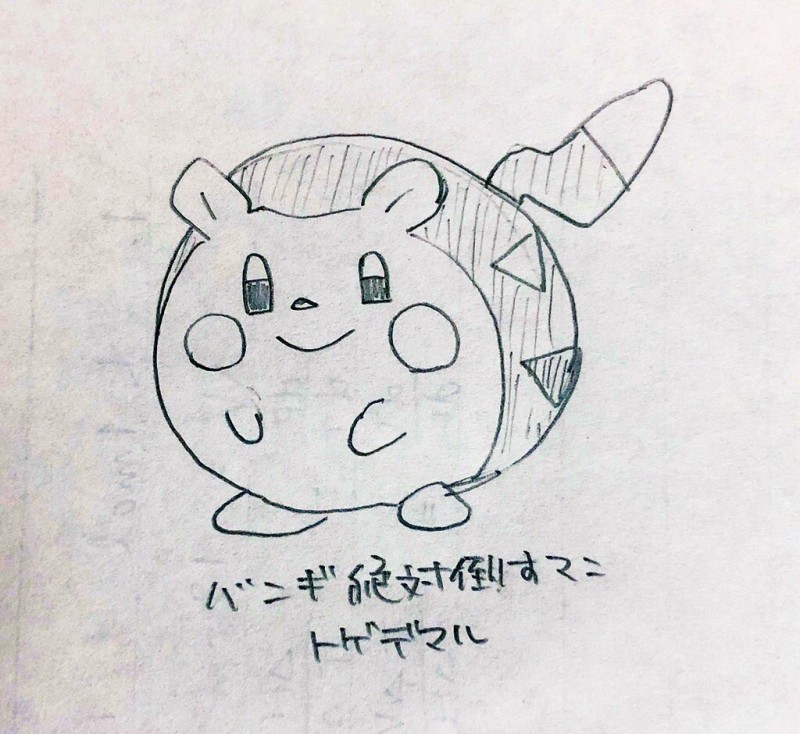 バニギ絶対倒すマニ
トゲデマル